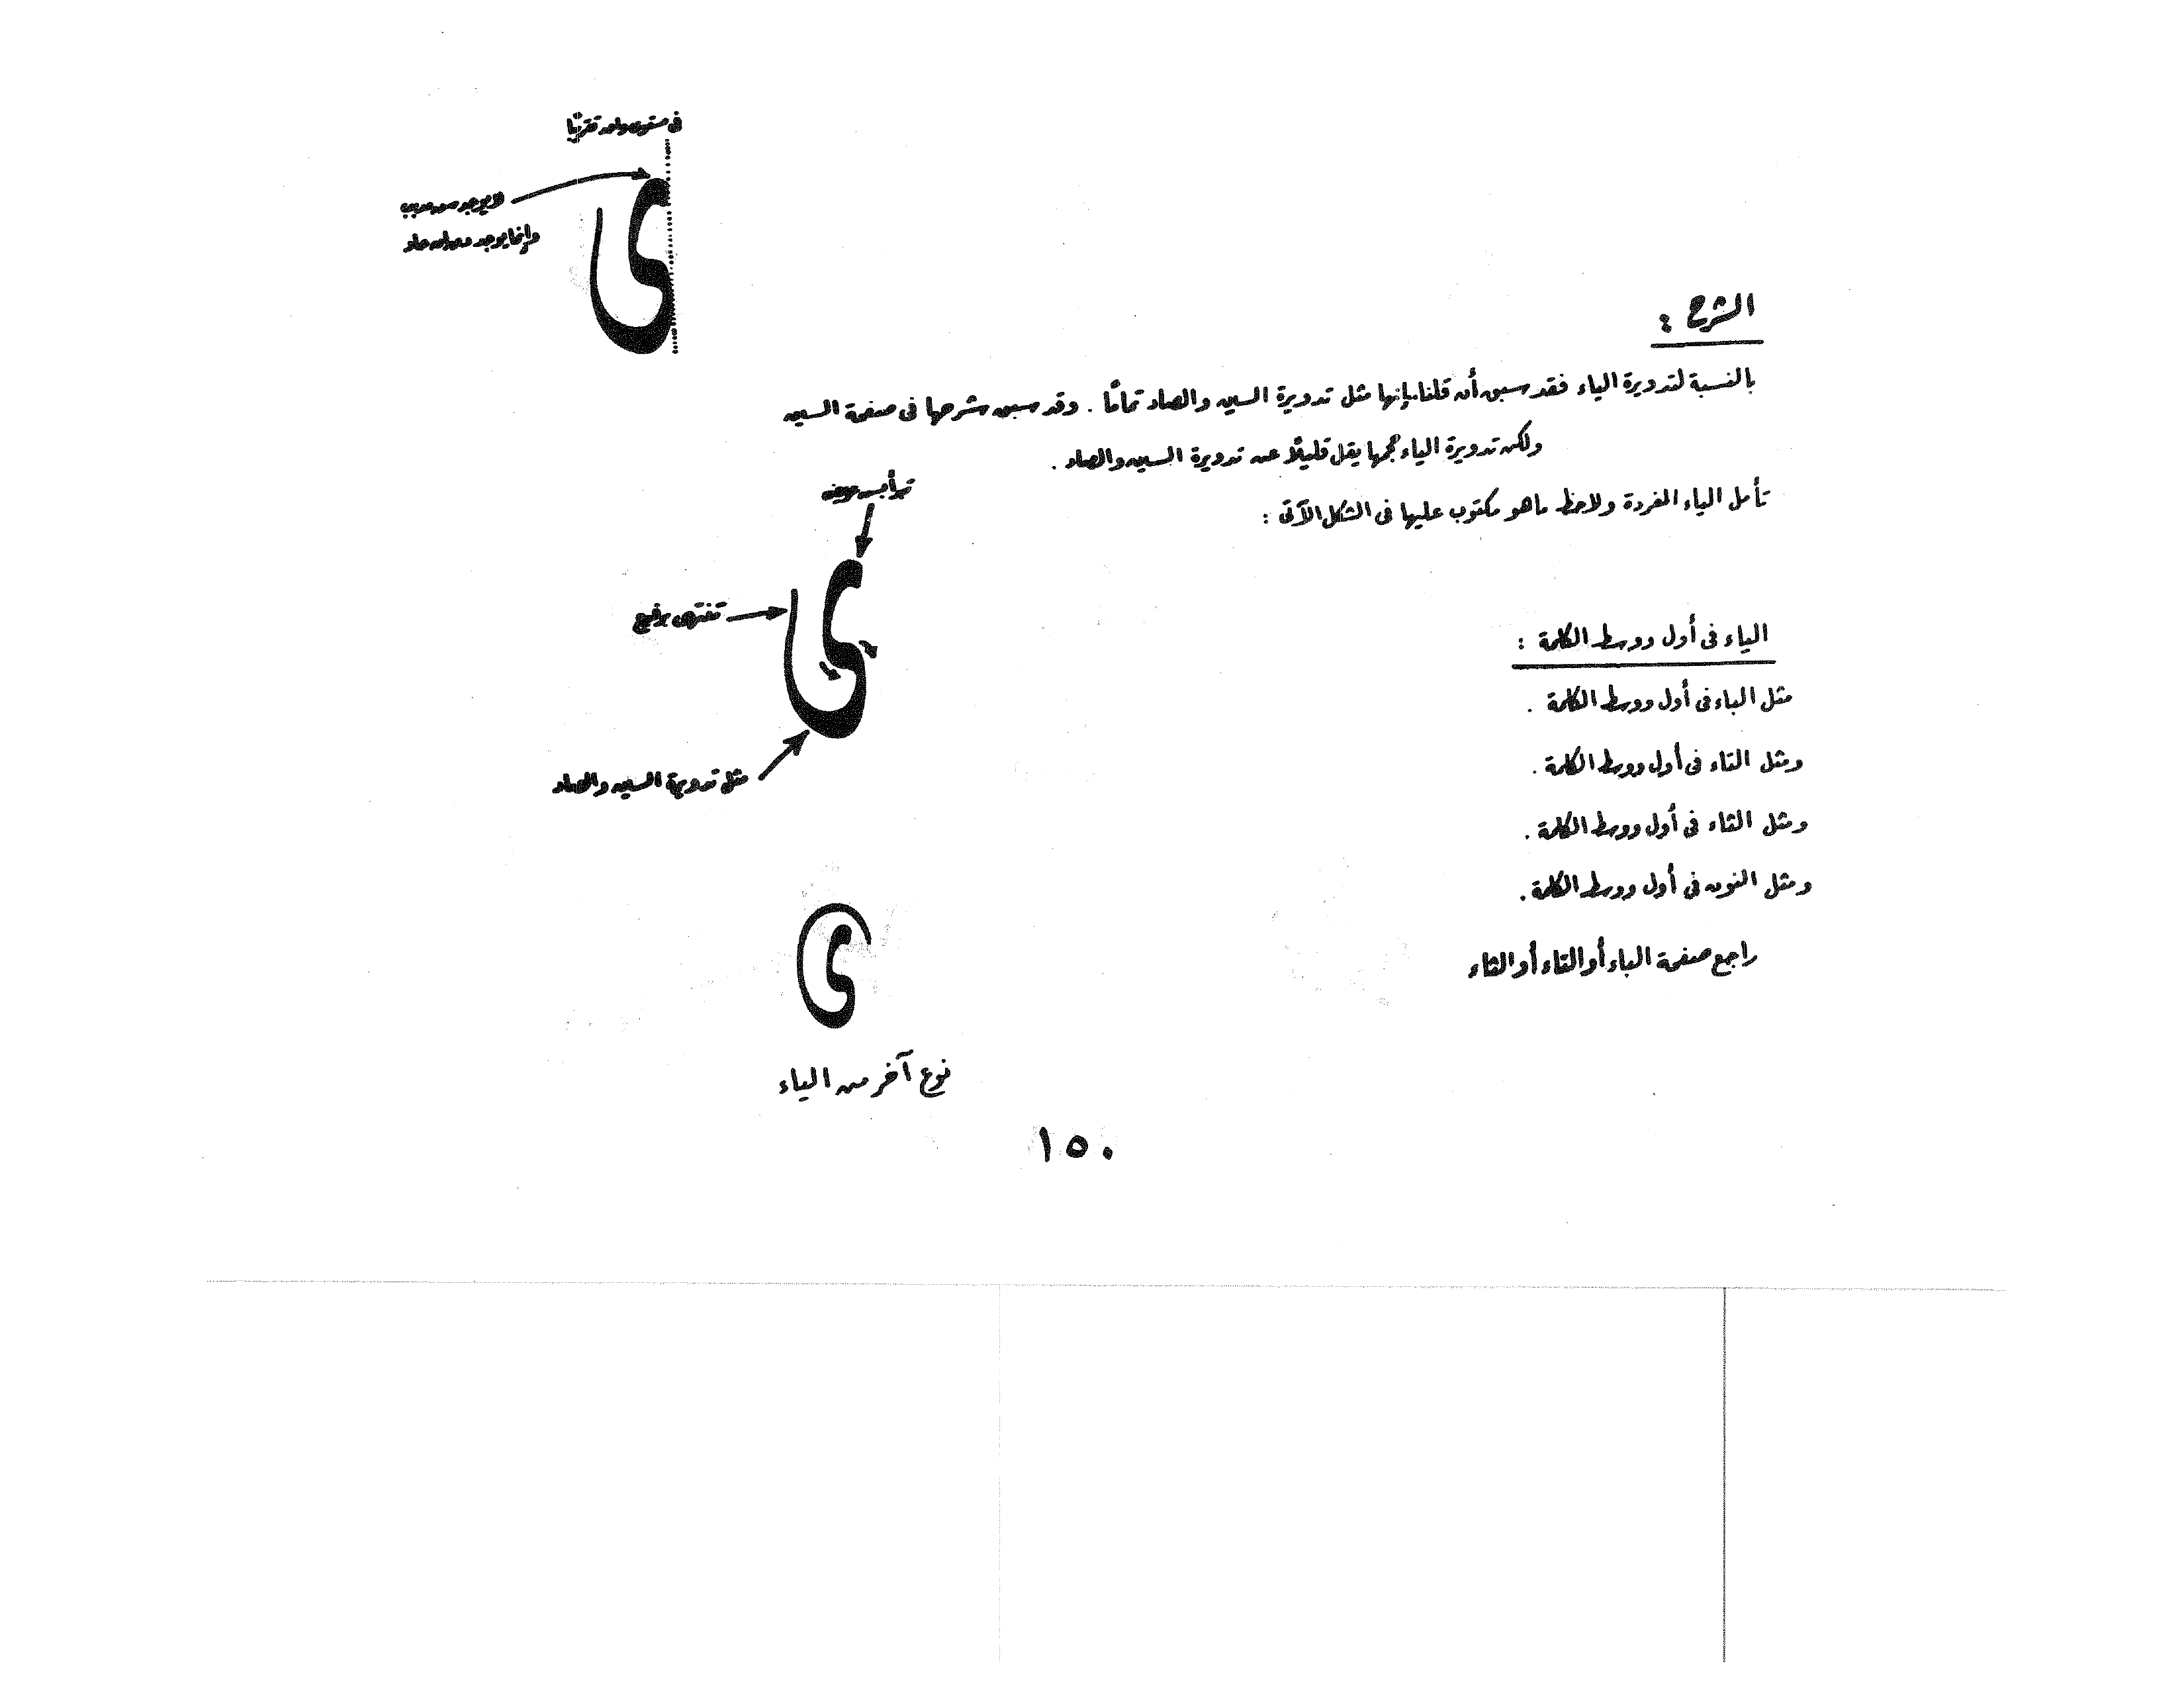 فى مستوى واحد تقريبًا
لا يوجد سن مدبب
وإنما يوجد
ى
الشرح :
بالنسبة لتدويرة الياء فقد سبق أن قلنا بإنها مثل تدويرة السين والصاد تمامًا . وقد سبق شرحها فى صفحة السين
ولكن تدويرة الياء حجمها يقل قليلًا عن تدويرة السين والصاد .
تأمل الياء المفردة ولاحظ ماهو مكتوب عليها فى الشكل الآتى :
تبدأ بسن عريض
ى
تنتهى برفيع
مثل تدويرة السين والصاد
الياء فى أول ووسط الكلمة :
مثل الباء فى أول ووسط الكلمة .
ومثل التاء فى أول ووسط الكلمة .
ومثل الثاء فى أول ووسط الكلمة .
ومثل النون فى أول ووسط الكلمة .
راجع صفحة الباء أو التاء أو الثاء
ى
نوع آخر من الياء
١٥٠